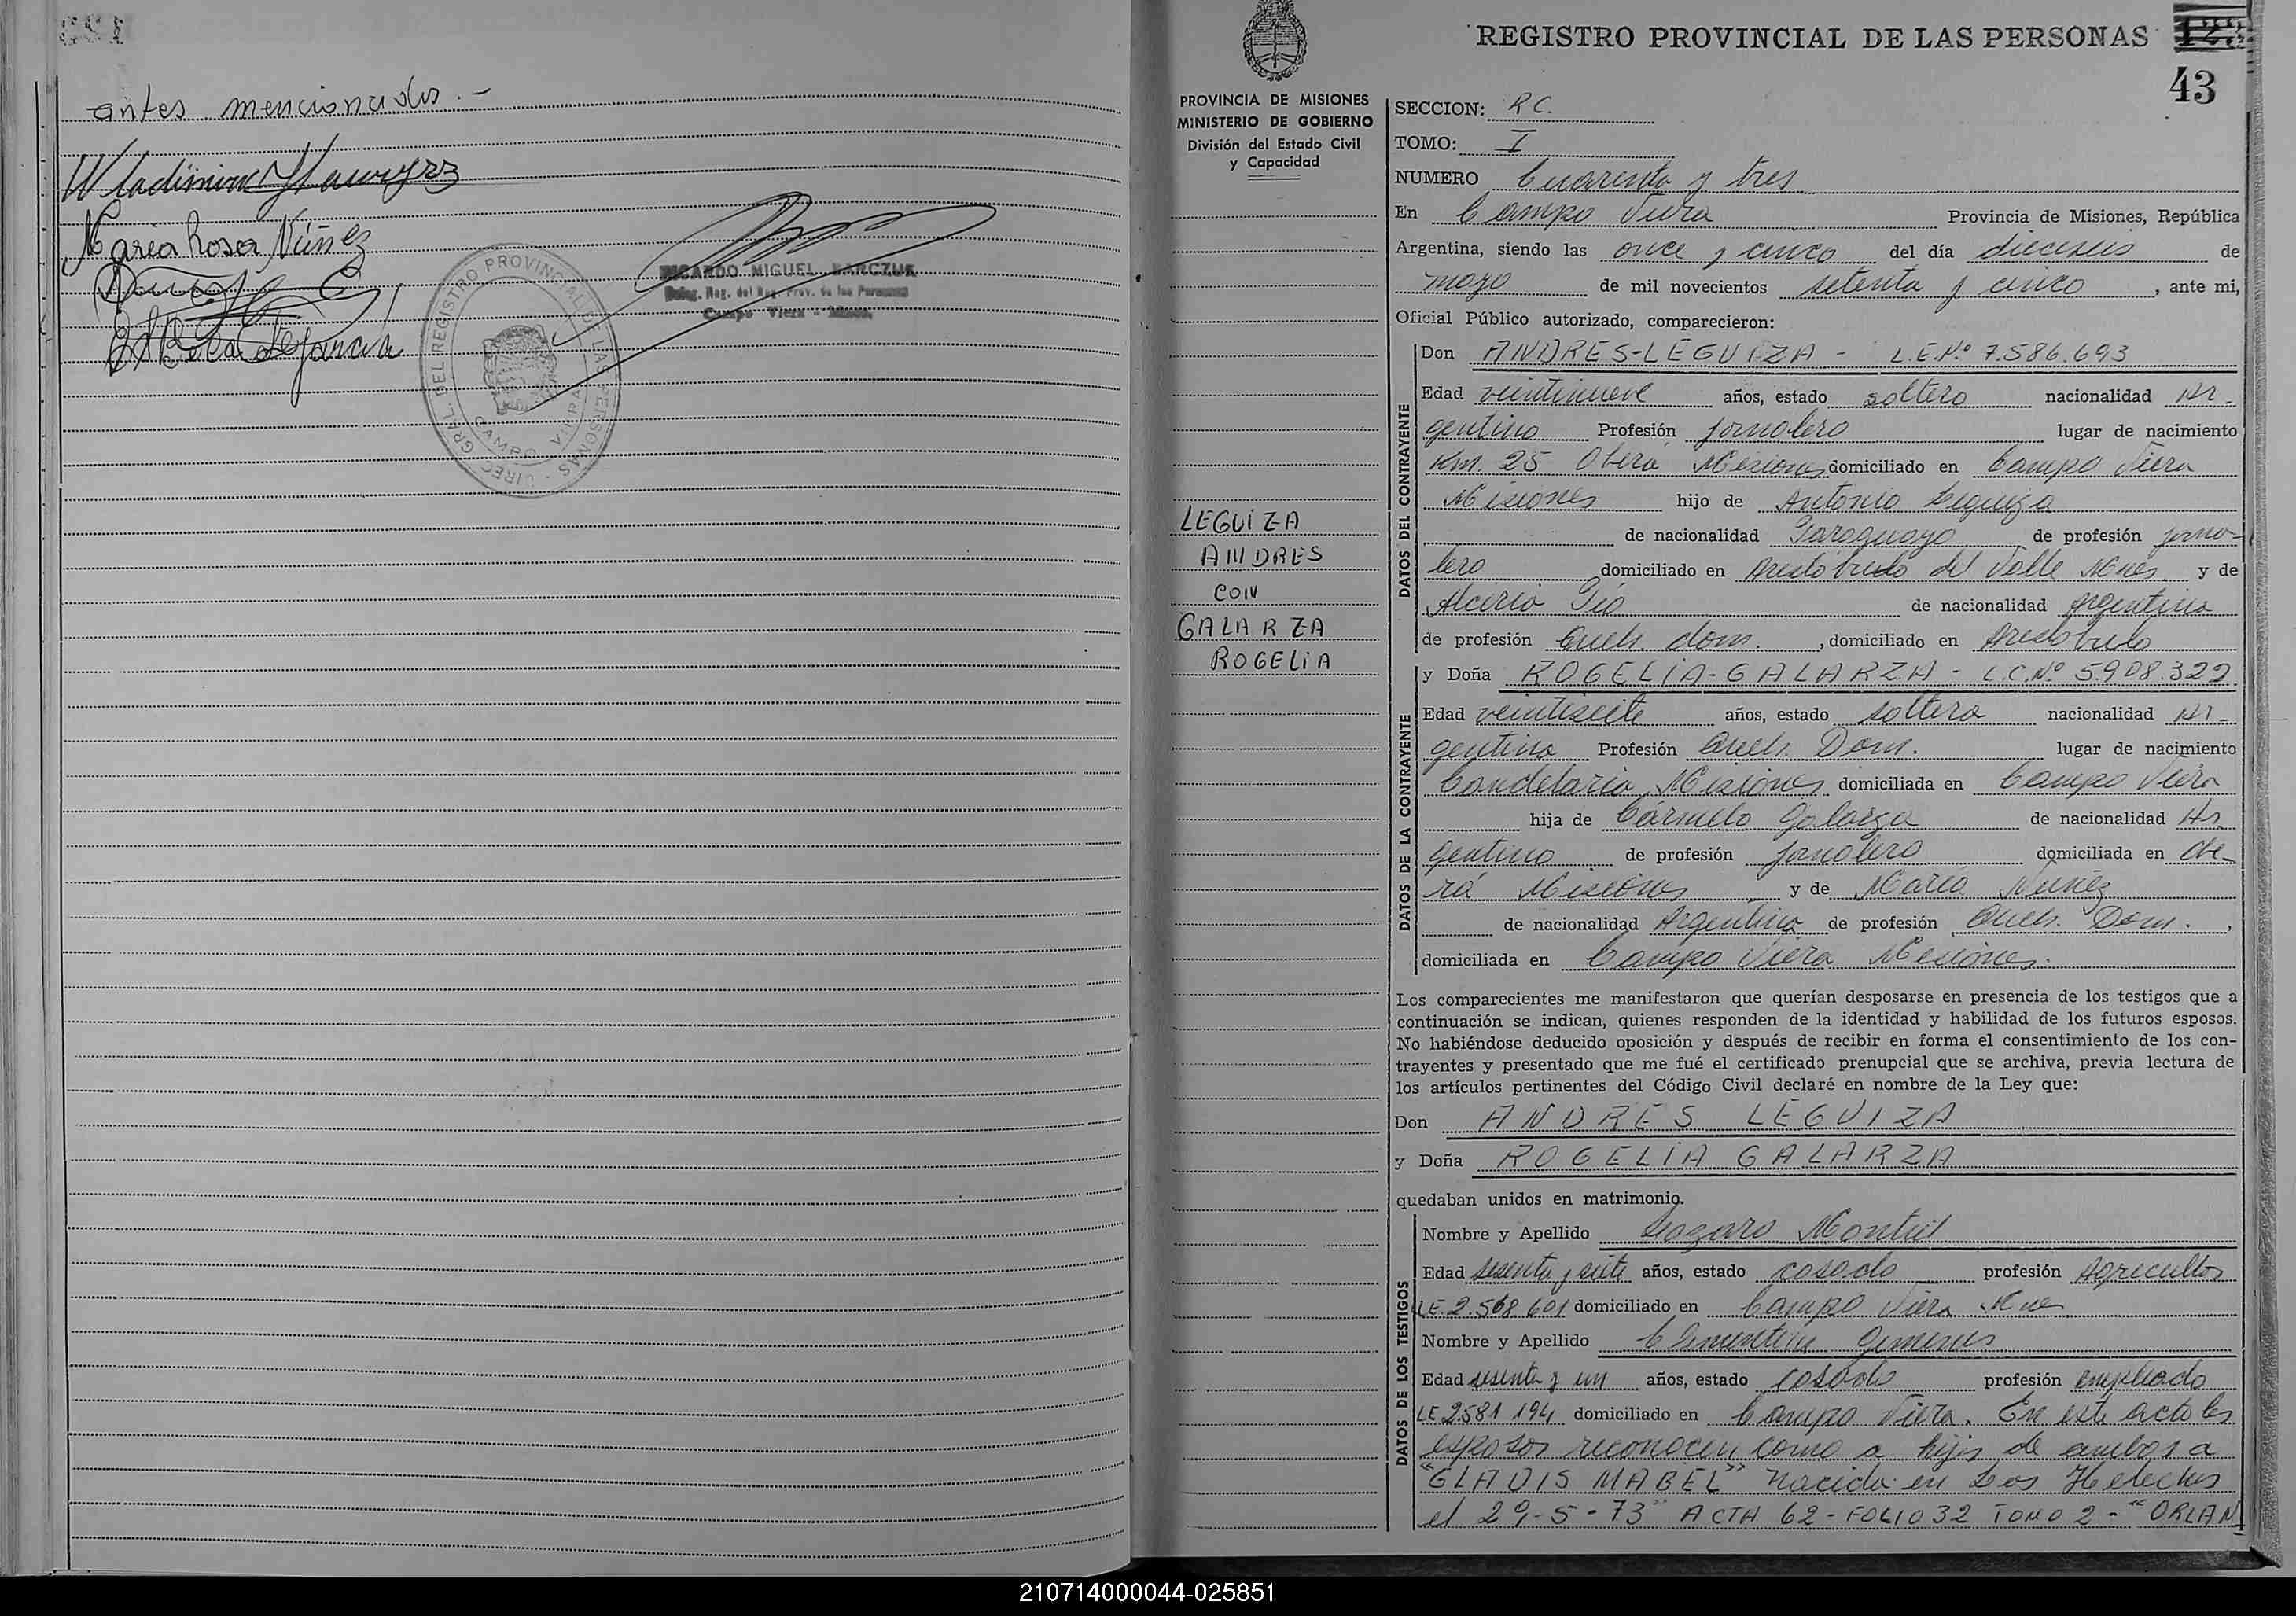 antes mencionados.-
Wladimiro Hawrysz
Maria Rosa Núñez
RICARDO MIGUEL BARCZUK
Deleg. Reg. del Reg. Prov. de las Personas
Campo Viera - Mnes.
DIREC. GRAL. DEL REGISTRO PROVINCIAL DE LAS PERSONAS
CAMPO VIERA
REGISTRO PROVINCIAL DE LAS PERSONAS
43
PROVINCIA DE MISIONES
MINISTERIO DE GOBIERNO
División del Estado Civil
y Capacidad
LEGUIZA
ANDRES
CON
GALARZA
ROGELIA
SECCION: R C.
TOMO: I
NUMERO Cuarenta y tres
En Campo Viera Provincia de Misiones, República
Argentina, siendo las once y cinco del día dieciseis de
mayo de mil novecientos setenta y cinco, ante mi,
Oficial Público autorizado, comparecieron:
DATOS DEL CONTRAYENTE
Don ANDRES-LEGUIZA - L.E.Nº 7.586.693
Edad veintinueve años, estado soltero nacionalidad Ar-
gentino Profesión Jornalero lugar de nacimiento
Km. 25 Oberá Misiones domiciliado en Campo Viera
Misiones hijo de Antonio Leguiza
de nacionalidad Paraguayo de profesión jorna-
lero domiciliado en Aristobulo del Valle Mnes y de
Alciria de nacionalidad Argentina
de profesión Queh. dom., domiciliado en Aristobulo
DATOS DE LA CONTRAYENTE
y Doña ROGELIA-GALARZA - L.C.Nº 5.908.322
Edad veintisiete años, estado soltera nacionalidad Ar-
gentina Profesión Queh. Dom. lugar de nacimiento
Candelaria, Misiones domiciliada en Campo Viera
hija de Cármelo Galarza de nacionalidad Ar
gentino de profesión Jornalero domiciliada en Obe-
rá Misiones y de Maria Nuñez
de nacionalidad Argentina de profesión Queh. Dom.,
domiciliada en Campo Viera Misiones.
Los comparecientes me manifestaron que querían desposarse en presencia de los testigos que a
continuación se indican, quienes responden de la identidad y habilidad de los futuros esposos.
No habiéndose deducido oposición y después de recibir en forma el consentimiento de los con-
trayentes y presentado que me fué el certificado prenupcial que se archiva, previa lectura de
los artículos pertinentes del Código Civil declaré en nombre de la Ley que:
Don ANDRES LEGUIZA
y Doña ROGELIA GALARZA
quedaban unidos en matrimonio.
DATOS DE LOS TESTIGOS
Nombre y Apellido Lazaro Montiel
Edad sesenta y siete años, estado casado profesión Agricultor
LE.2.568.601 domiciliado en Campo Viera Mnes
Nombre y Apellido Clementino Gimenes
Edad sesenta y un años, estado casado profesión empleado
LE 2581 194 domiciliado en Campo Viera. En este acto los
esposos reconocen como a hijos de ambos a
"GLADIS MABEL" Nacida en Los Helechos
el 29-5-73" ACTA 62-FOLIO 32 TOMO 2-"ORLAN
210714000044-025851